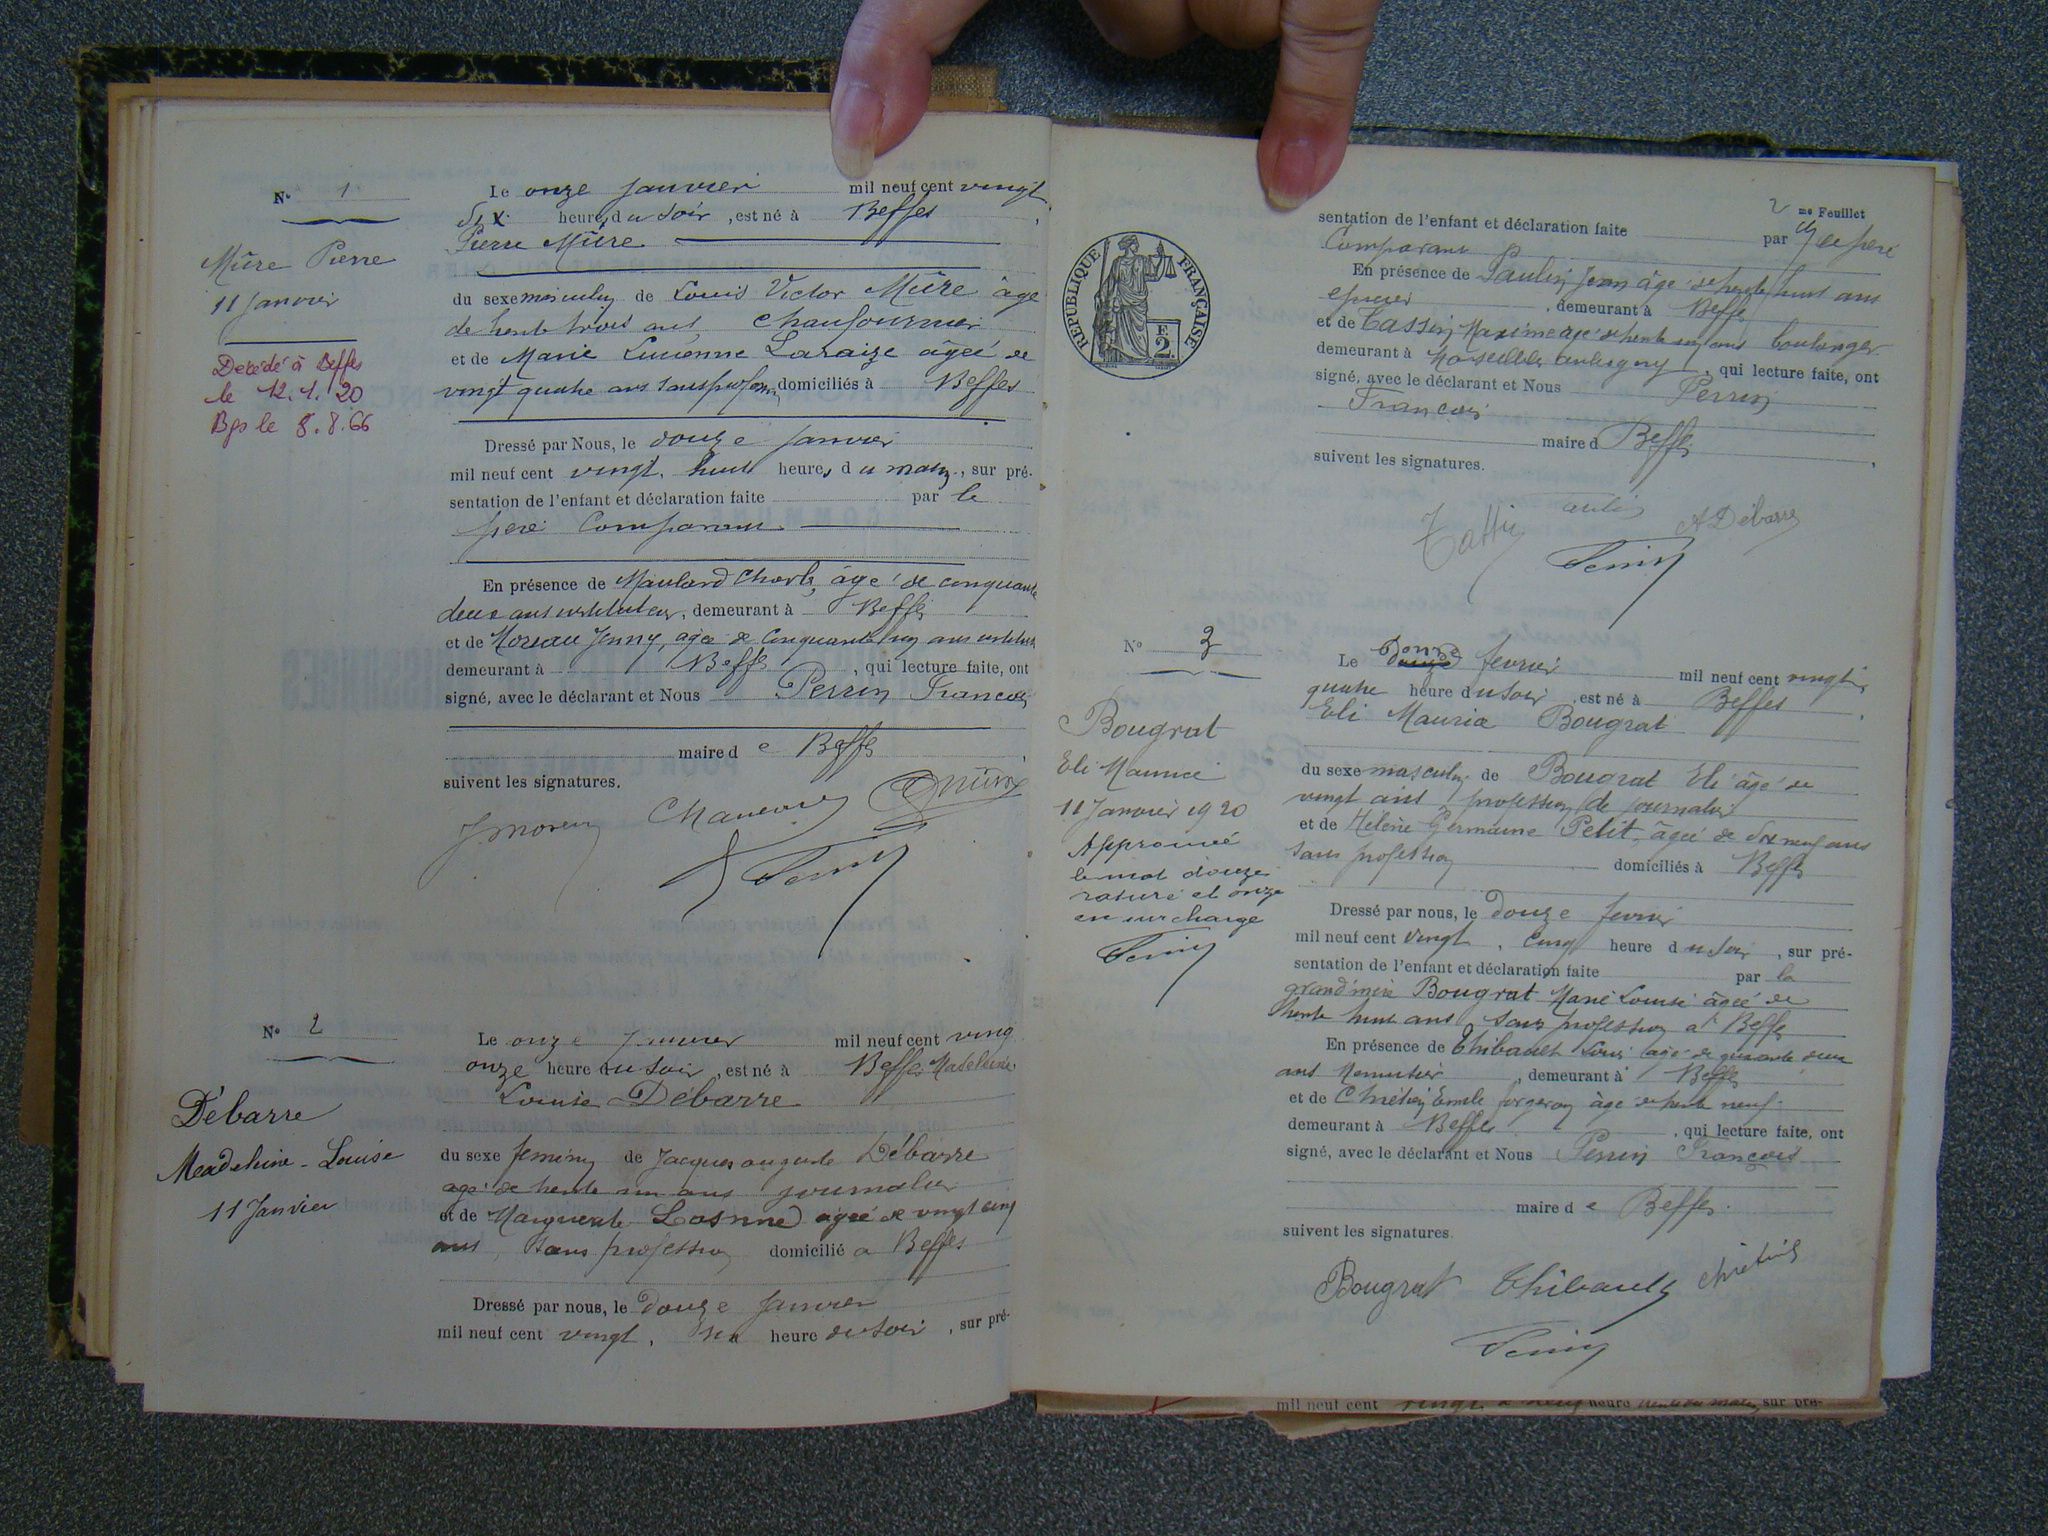 N° 1
Mûre Pierre
11 Janvier
Décédé à Beffes
le 12.1.20
Bgs le 8.8.66
Le onze Janvier mil neuf cent vingt
dix heures du soir, est né à Beffes
Pierre Mûre
du sexe masculin de Louis Victor Mûre âgé
de trente trois ans chaufournier
et de Marie Lucienne Laraize âgée de
vingt quatre ans sans profession, domiciliés à Beffes
Dressé par Nous, le douze Janvier
mil neuf cent vingt, huit heures du matin, sur pré-
sentation de l'enfant et déclaration faite par le
père Comparant
En présence de Maulard Charles, âgé de cinquante
deux ans instituteur, demeurant à Beffes
et de Moreau Jenny, agée de cinquante ans
demeurant à Beffes, qui lecture faite, ont
signé, avec le déclarant et Nous Perrin François
maire de Beffes
suivent les signatures.
J Moreau Mûre
Perrin
N° 2
Débarre
Madeleine - Louise
11 Janvier
Le onze Janvier mil neuf cent vingt
onze heure du soir, est né à Beffes Madeleine
Louise Débarre
du sexe féminin de Jacques auguste Débarre
agé de trente un ans journalier
et de Marguerite Losnned agée de vingt cinq
ans, sans profession domicilié a Beffes
Dressé par nous, le Douze Janvier
mil neuf cent vingt, heure du soir, sur pré-
2 me Feuillet
sentation de l'enfant et déclaration faite par le père
Comparant
En présence de Paulin Jean âgé de trente huit ans
épicier, demeurant à Beffes
et de Tassin Maxime agé de trente ans boulanger
demeurant à Marseilles aubigny, qui lecture faite, ont
signé, avec le déclarant et Nous Perrin
François
maire d Beffes
suivent les signatures.
Tassin Paulin A Débarre
Perrin
REPUBLIQUE FRANÇAISE
E
2
N° 3
Bougrat
Eli Maurice
11 Janvier 1920
Approuvé
le mot douze
raturé et onze
en surcharge
Perrin
onze
Le douze fevrier mil neuf cent vingt,
quatre heure du soir, est né à Beffes
Eli Maurice Bougrat
du sexe masculin de Bougrat Eli âgé de
vingt ans profession de journalier
et de Hélène Germaine Petit, âgée de dix neuf ans
sans profession domiciliés à Beffes
Dressé par nous, le Douze fevrier
mil neuf cent vingt, cinq heure du soir, sur pré-
sentation de l'enfant et déclaration faite par la
grand'mère Bougrat Marie Louise âgée de
trente huit ans sans profession à Beffes
En présence de Thibault Louis agé de quarante deux
ans Menuisier, demeurant à Beffes
et de Chrétien Emile forgeron âgé de trente neuf
demeurant à Beffes, qui lecture faite, ont
signé, avec le déclarant et Nous Perrin François
maire de Beffes.
suivent les signatures
Bougrat Thibault Chrétien
Perrin
mil neuf cent vingt à neuf heure trente du matin, sur pré-